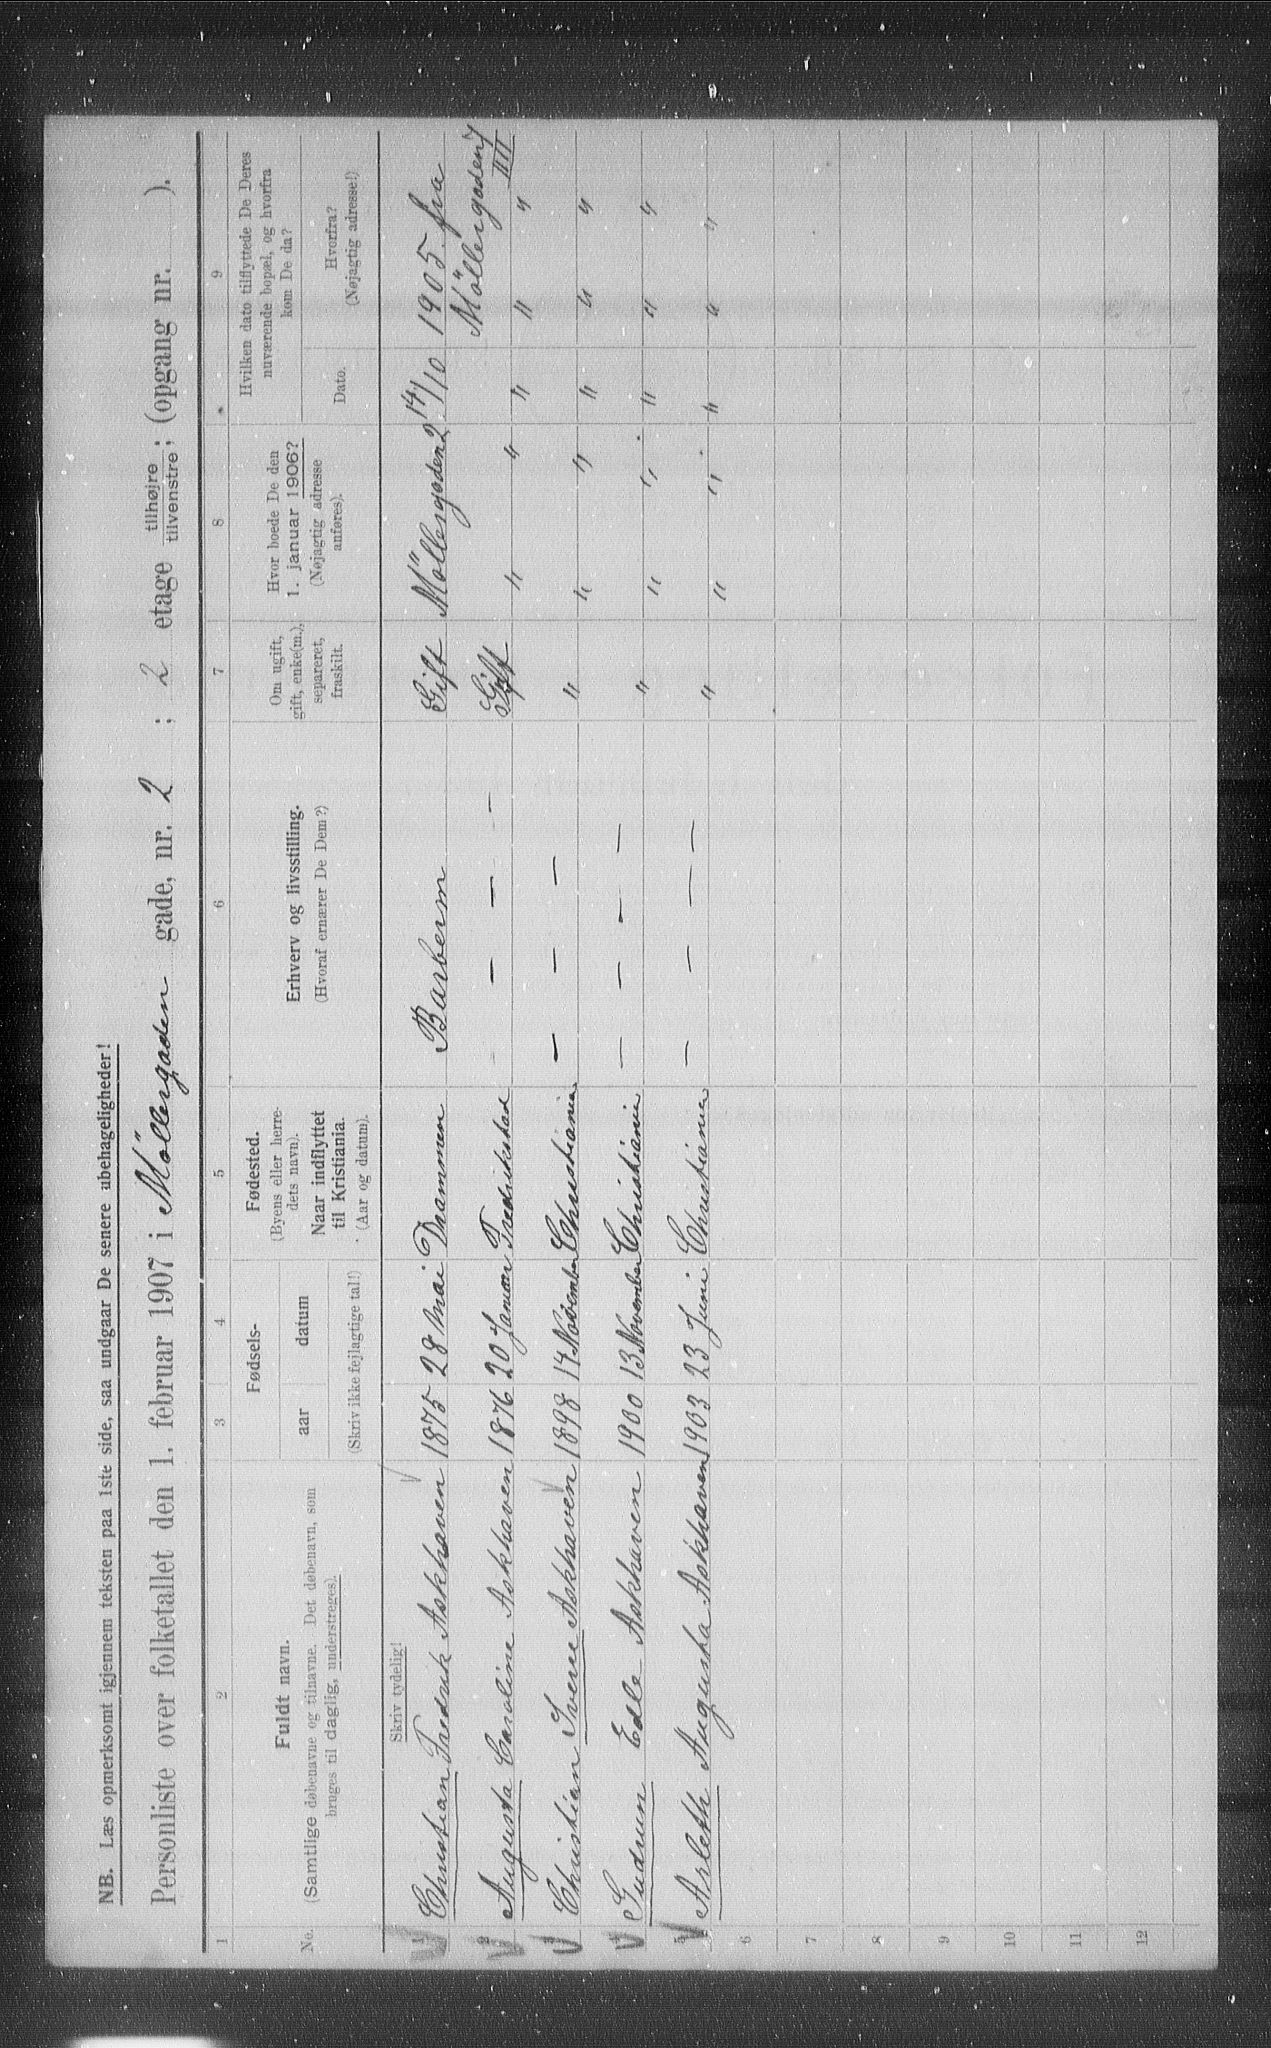 NB. Læs opmerksomt igjennem teksten paa 1ste side, saa undgaar De senere ubehageligheder!
Personliste over folketallet den 1. februar 1907 i Möllergaden gade, nr. 2 ; 2 etage tilhøjre tilvenstre ; (opgang nr. ).
1 2 3 4 5 6 7 8 9
No.
Fuldt navn.
(Samtlige døbenavne og tilnavne. Det døbenavn, som
bruges til daglig, understreges).
Fødsels-
aar datum
(Skriv ikke fejlagtige tal!)
Fødested.
(Byens eller herre-
dets navn).
Naar indflyttet
til Kristiania.
(Aar og datum).
Erhverv og livsstilling.
(Hvoraf ernærer De Dem?)
Om ugift,
gift, enke(m.),
separeret,
fraskilt.
Hvor boede De den
1. januar 1906?
(Nøjagtig adresse
anføres).
Hvilken dato tilflyttede De Deres
nuværende bopæl, og hvorfra
kom De da?
Dato.
Hvorfra?
(Nøjagtig adresse!)
Skriv tydelig!
1 Christian Fredrik Askhaven 1875 28 Mai Drammen Barberm Gift Möllergaden 2 14/10 1905. fra
Möllergaden 7 III
2 Augusta Caroline Askhaven 1876 20 Januar Fredrikstad - - - Gift " " " " "
3 Christian Sverre Askhaven 1898 14 November Christiania - - - " " " " " "
4 Gudrun Edle Askhaven 1900 13 November Christiania - - - - " " " " " "
5 Arleth Augusta Askhaven 1903 23 Juni Christiania - - - - " " " " " "
6
7
8
9
10
11
12